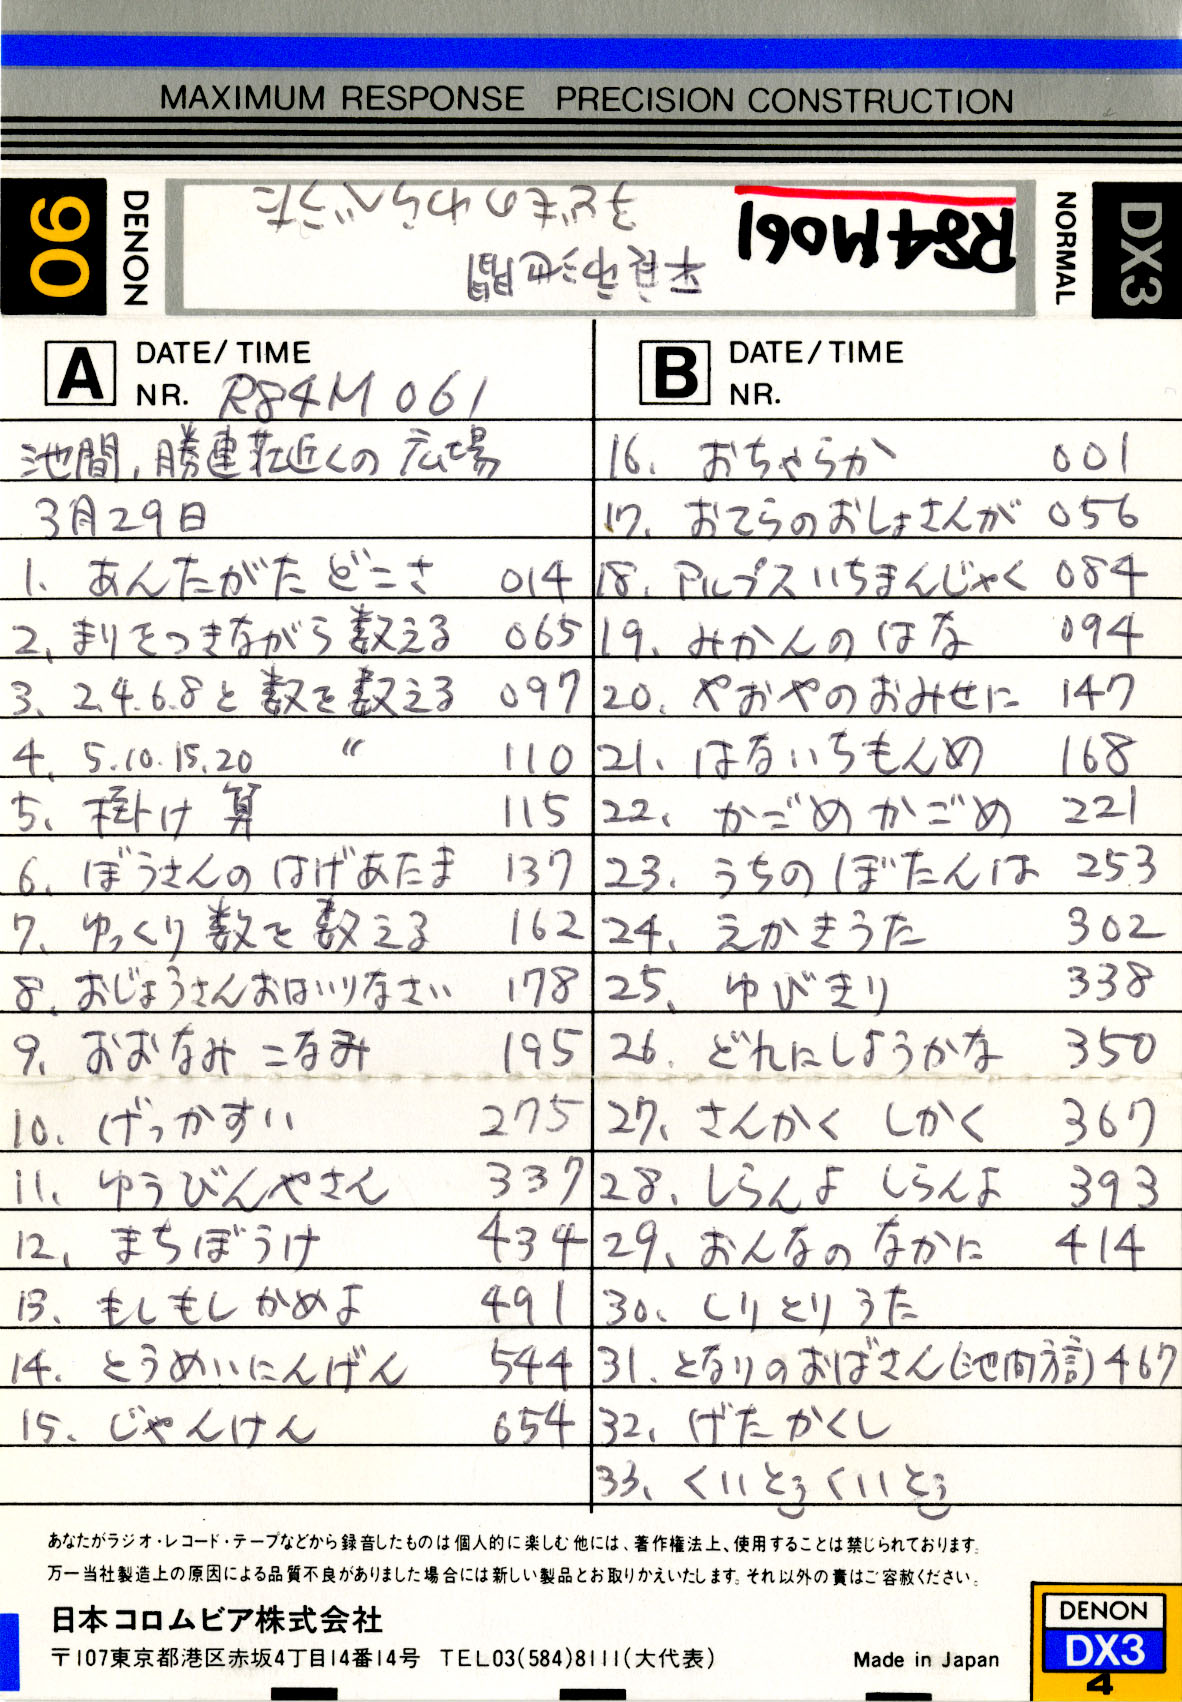 MAXIMUM RESPONSE PRECISION CONSTRUCTION
90
DENON
R84M061
平良市池間
子どものわらべうた
NORMAL
DX3
A DATE/TIME
NR. R84M061
池間,勝連荘近くの広場
3月29日
1. あんたがたどこさ 014
2. まりをつきながら数える 065
3. 2.4.6.8と数を数える 097
4. 5.10.15.20 〃 110
5. 掛け算 115
6. ぼうさんのはげあたま 137
7. ゆっくり数を数える 162
8. おじょうさんおはいりなさい 178
9. おおなみこなみ 195
10. げっかすい 275
11. ゆうびんやさん 337
12. まちぼうけ 434
13. もしもしかめよ 491
14. とうめいにんげん 544
15. じゃんけん 654
B DATE/TIME
NR.
16. おちゃらか 001
17. おてらのおしょさんが 056
18. アルプスいちまんじゃく 084
19. みかんのはな 094
20. やおやのおみせに 147
21. はないちもんめ 168
22. かごめかごめ 221
23. うちのぼたんは 253
24. えかきうた 302
25. ゆびきり 338
26. どれにしようかな 350
27. さんかくしかく 367
28. しらんよ しらんよ 393
29. おんなのなかに 414
30. しりとりうた
31. となりのおばさん(池間方言) 467
32. げたかくし
33. くいとぅくいとぅ
あなたがラジオ・レコード・テープなどから録音したものは個人的に楽しむ他には、著作権法上、使用することは禁じられております。
万一当社製造上の原因による品質不良がありました場合には新しい製品とお取りかえいたします。それ以外の責はご容赦ください。
日本コロムビア株式会社
〒107東京都港区赤坂4丁目14番14号 TEL03(584)8111(大代表)
Made in Japan
DENON
DX3
4